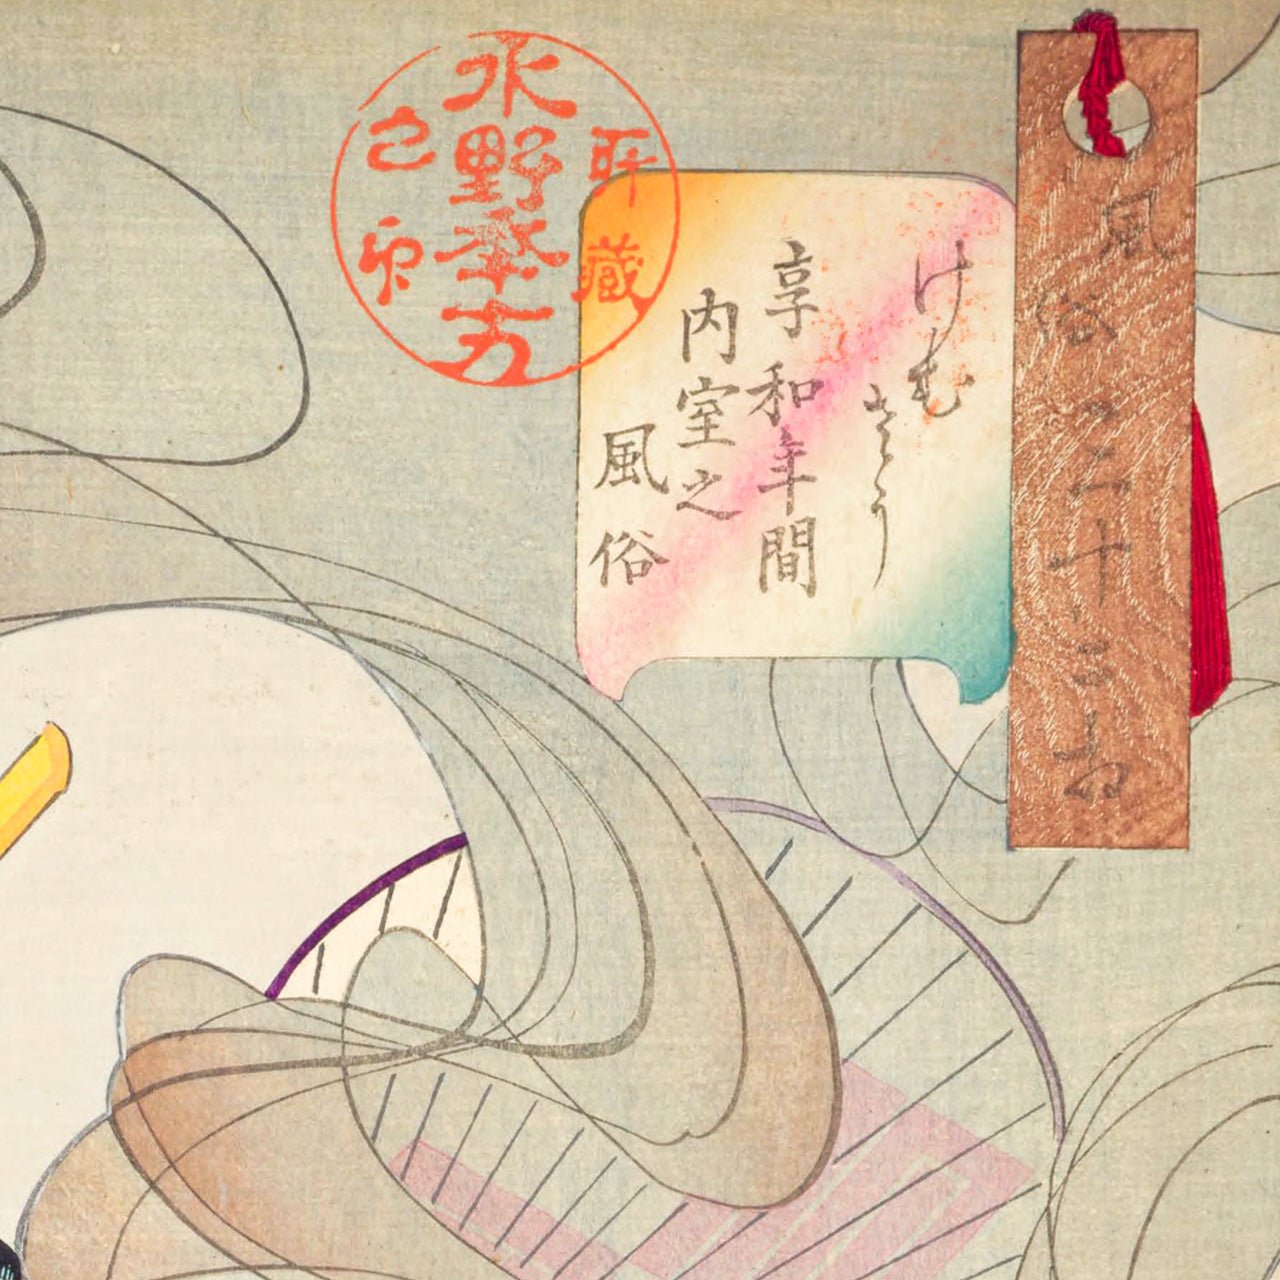 風俗三十二相
けむ
さう
享和年間
内室之
風俗
所蔵
水野年方
之印